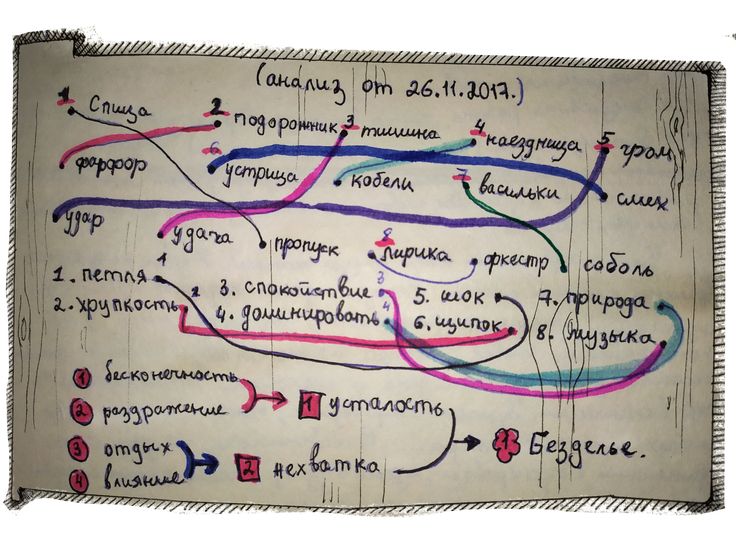 (анализ от 26.11.2017.)
1 Спица 2 подорожник 3 тишина 4 наездница 5 гром
фарфор 6 устрица кобели 7 васильки смех
удар удача пропуск 8 лирика оркестр соболь
1. петля 1 3. спокойствие 3 5. шок 7. природа
2. хрупкость 2 4. доминировать 4 6. щипок 8. музыка
1 бесконечность
2 раздражение 1 усталость
3 отдых 1 Безделье.
4 влияние 2 нехватка